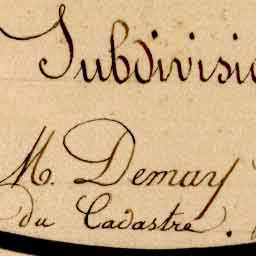 Subdivisio
M. Demay
du Cadastre.